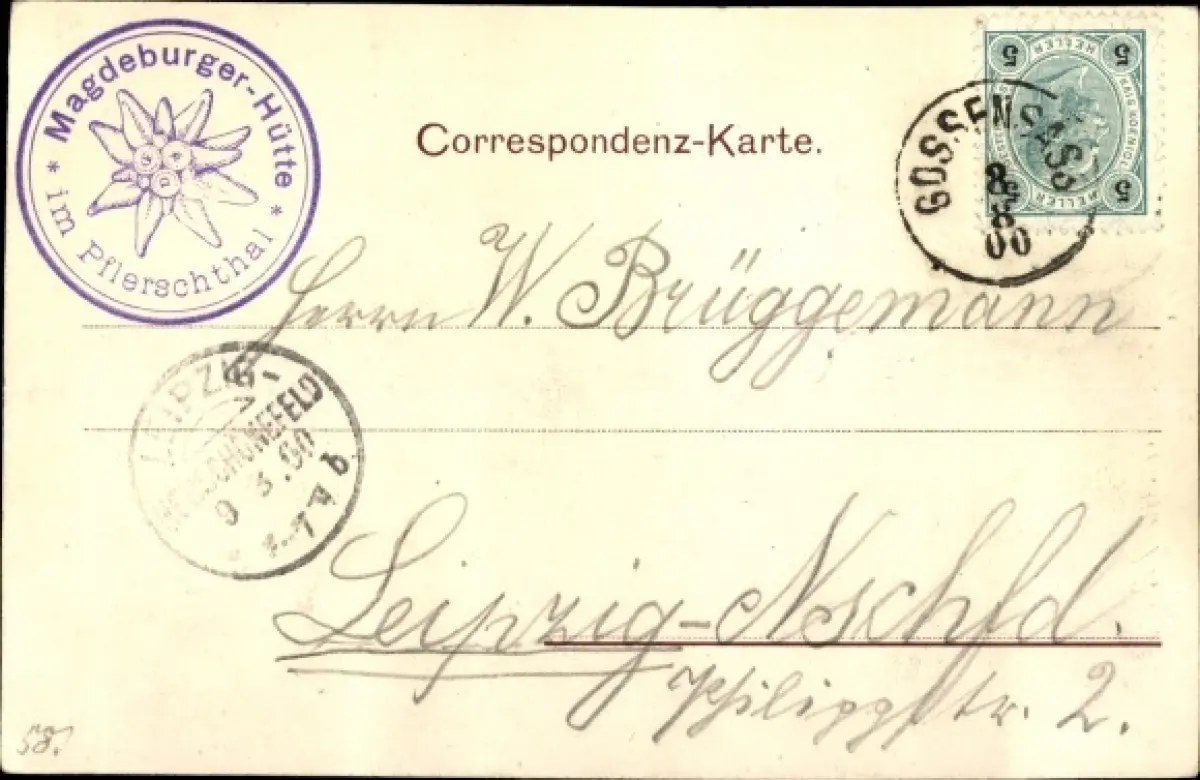 * Magdeburger-Hütte *
im Pflerschthal
Correspondenz-Karte.
5 HELLER 5
5 HELLER 5
GOSSENSASS
8
8
00
Herrn W. Brüggemann
LEIPZIG-
NEUSCHÖNEFELD
9 8.00
Leipzig-Nschfd.
Philippstr. 2.
58.